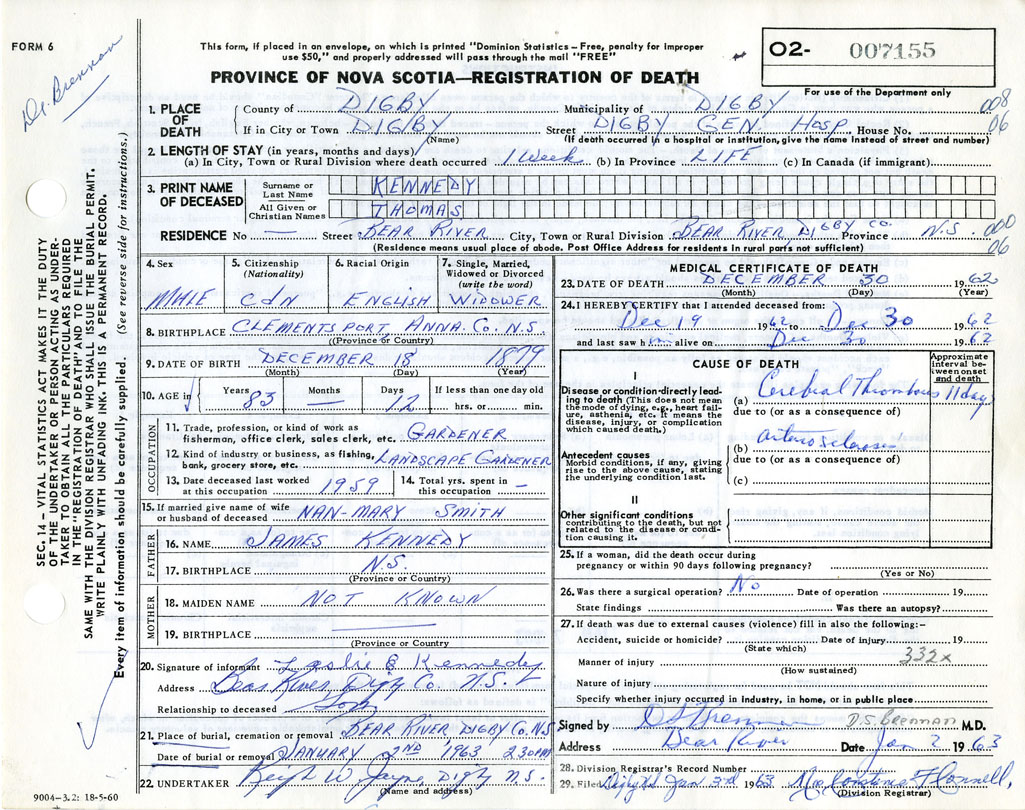 FORM 6
Dr. Brennan
This form, if placed in an envelope, on which is printed "Dominion Statistics – Free, penalty for improper
use $50," and properly addressed will pass through the mail "FREE"
PROVINCE OF NOVA SCOTIA—REGISTRATION OF DEATH
O2- 007155
For use of the Department only
008
06
1. PLACE OF DEATH
County of DIGBY Municipality of DIGBY
If in City or Town DIGBY Street DIGBY GEN. HOSP House No.
(Name) (If death occurred in a hospital or institution, give the name instead of street and number)
2. LENGTH OF STAY (in years, months and days)
(a) In City, Town or Rural Division where death occurred 1 Week (b) In Province LIFE (c) In Canada (if immigrant)
3. PRINT NAME OF DECEASED
Surname or Last Name KENNEDY
All Given or Christian Names THOMAS
RESIDENCE No — Street BEAR RIVER City, Town or Rural Division BEAR RIVER, DIGBY CO. Province N.S.
000
06
(Residence means usual place of abode. Post Office Address for residents in rural parts not sufficient)
4. Sex MALE
5. Citizenship (Nationality) CDN
6. Racial Origin ENGLISH
7. Single, Married, Widowed or Divorced (write the word) WIDOWER
8. BIRTHPLACE CLEMENTSPORT, ANNA. CO. N.S.
(Province or Country)
9. DATE OF BIRTH DECEMBER 18 1879
(Month) (Day) (Year)
10. AGE in Years 83 Months — Days 12 If less than one day old hrs. or min.
OCCUPATION
11. Trade, profession, or kind of work as
fisherman, office clerk, sales clerk, etc. GARDENER
12. Kind of industry or business, as fishing,
bank, grocery store, etc. LANDSCAPE GARDENER
13. Date deceased last worked
at this occupation 1959
14. Total yrs. spent in
this occupation –
15. If married give name of wife
or husband of deceased NAN-MARY SMITH
FATHER
16. NAME JAMES KENNEDY
17. BIRTHPLACE N.S.
(Province or Country)
MOTHER
18. MAIDEN NAME NOT KNOWN
19. BIRTHPLACE
(Province or Country)
20. Signature of informant Leslie E Kennedy
Address Bear River, Digby Co. N.S.
Relationship to deceased Son
21. Place of burial, cremation or removal BEAR RIVER DIGBY CO. N.S
Date of burial or removal JANUARY 2ND 1963 2.30 PM
22. UNDERTAKER Jayne, Digby N.S.
(Name and address)
MEDICAL CERTIFICATE OF DEATH
23. DATE OF DEATH DECEMBER 30 1962
(Month) (Day) (Year)
24. I HEREBY CERTIFY that I attended deceased from:
Dec 19 1962 to Dec 30 1962
and last saw him alive on Dec 30 1962
CAUSE OF DEATH
Approximate interval between onset and death
I
Disease or condition directly leading to death (This does not mean the mode of dying, e.g., heart failure, asthenia, etc. It means the disease, injury, or complication which caused death.)
(a) Cerebral Thrombosis 11 days
due to (or as a consequence of)
Antecedent causes
Morbid conditions, if any, giving rise to the above cause, stating the underlying condition last.
(b) arteriosclerosis
due to (or as a consequence of)
(c)
II
Other significant conditions
contributing to the death, but not related to the disease or condition causing it.
25. If a woman, did the death occur during
pregnancy or within 90 days following pregnancy?
(Yes or No)
26. Was there a surgical operation? No Date of operation 19
State findings Was there an autopsy?
27. If death was due to external causes (violence) fill in also the following:–
Accident, suicide or homicide? Date of injury 19
(State which)
Manner of injury 332x
(How sustained)
Nature of injury
Specify whether injury occurred in industry, in home, or in public place
Signed by D S Brennan D.S. BRENNAN M.D.
Address Bear River Date Jan 2 1963
28. Division Registrar's Record Number
29. Filed Digby Jan 3rd 1963
(Division Registrar)
SEC. 14 – VITAL STATISTICS ACT MAKES IT THE DUTY
OF THE UNDERTAKER OR PERSON ACTING AS UNDER-
TAKER TO OBTAIN ALL THE PARTICULARS REQUIRED
IN THE "REGISTRATION OF DEATH" AND TO FILE THE
SAME WITH THE DIVISION REGISTRAR WHO SHALL ISSUE THE BURIAL PERMIT.
WRITE PLAINLY WITH UNFADING INK. THIS IS A PERMANENT RECORD.
Every item of information should be carefully supplied. (See reverse side for instructions.)
9004–3.2: 18-5-60